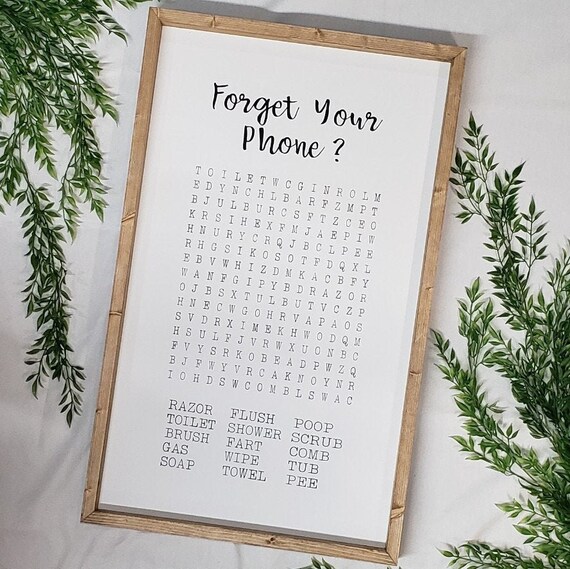 Forget Your
Phone ?
T O I L E T W C G I N R O L M
E D Y N C H L B A R F Z M P T
B J U L B U R C S F T Z C E O
K R S I H E X F M J A E P I W
H N U R Y C R Q J B C L P E E
R H G S I K O S O T F D Q X L
E B V W H I Z D M K A C B F Y
W A N F G I P Y B D R A Z O R
O J B S X T U L B U T V C Z P
H N E C W G O H R V A P A O S
S V D R X I M E K H W O D Q M
H S U L F J V R W X U O N B C
F V Y S R K O B E A D P W Z Q
B J F W Y V R C A K N O Y N R
I O H D S W C O M B L S W A C
RAZOR FLUSH POOP
TOILET SHOWER SCRUB
BRUSH FART COMB
GAS WIPE TUB
SOAP TOWEL PEE